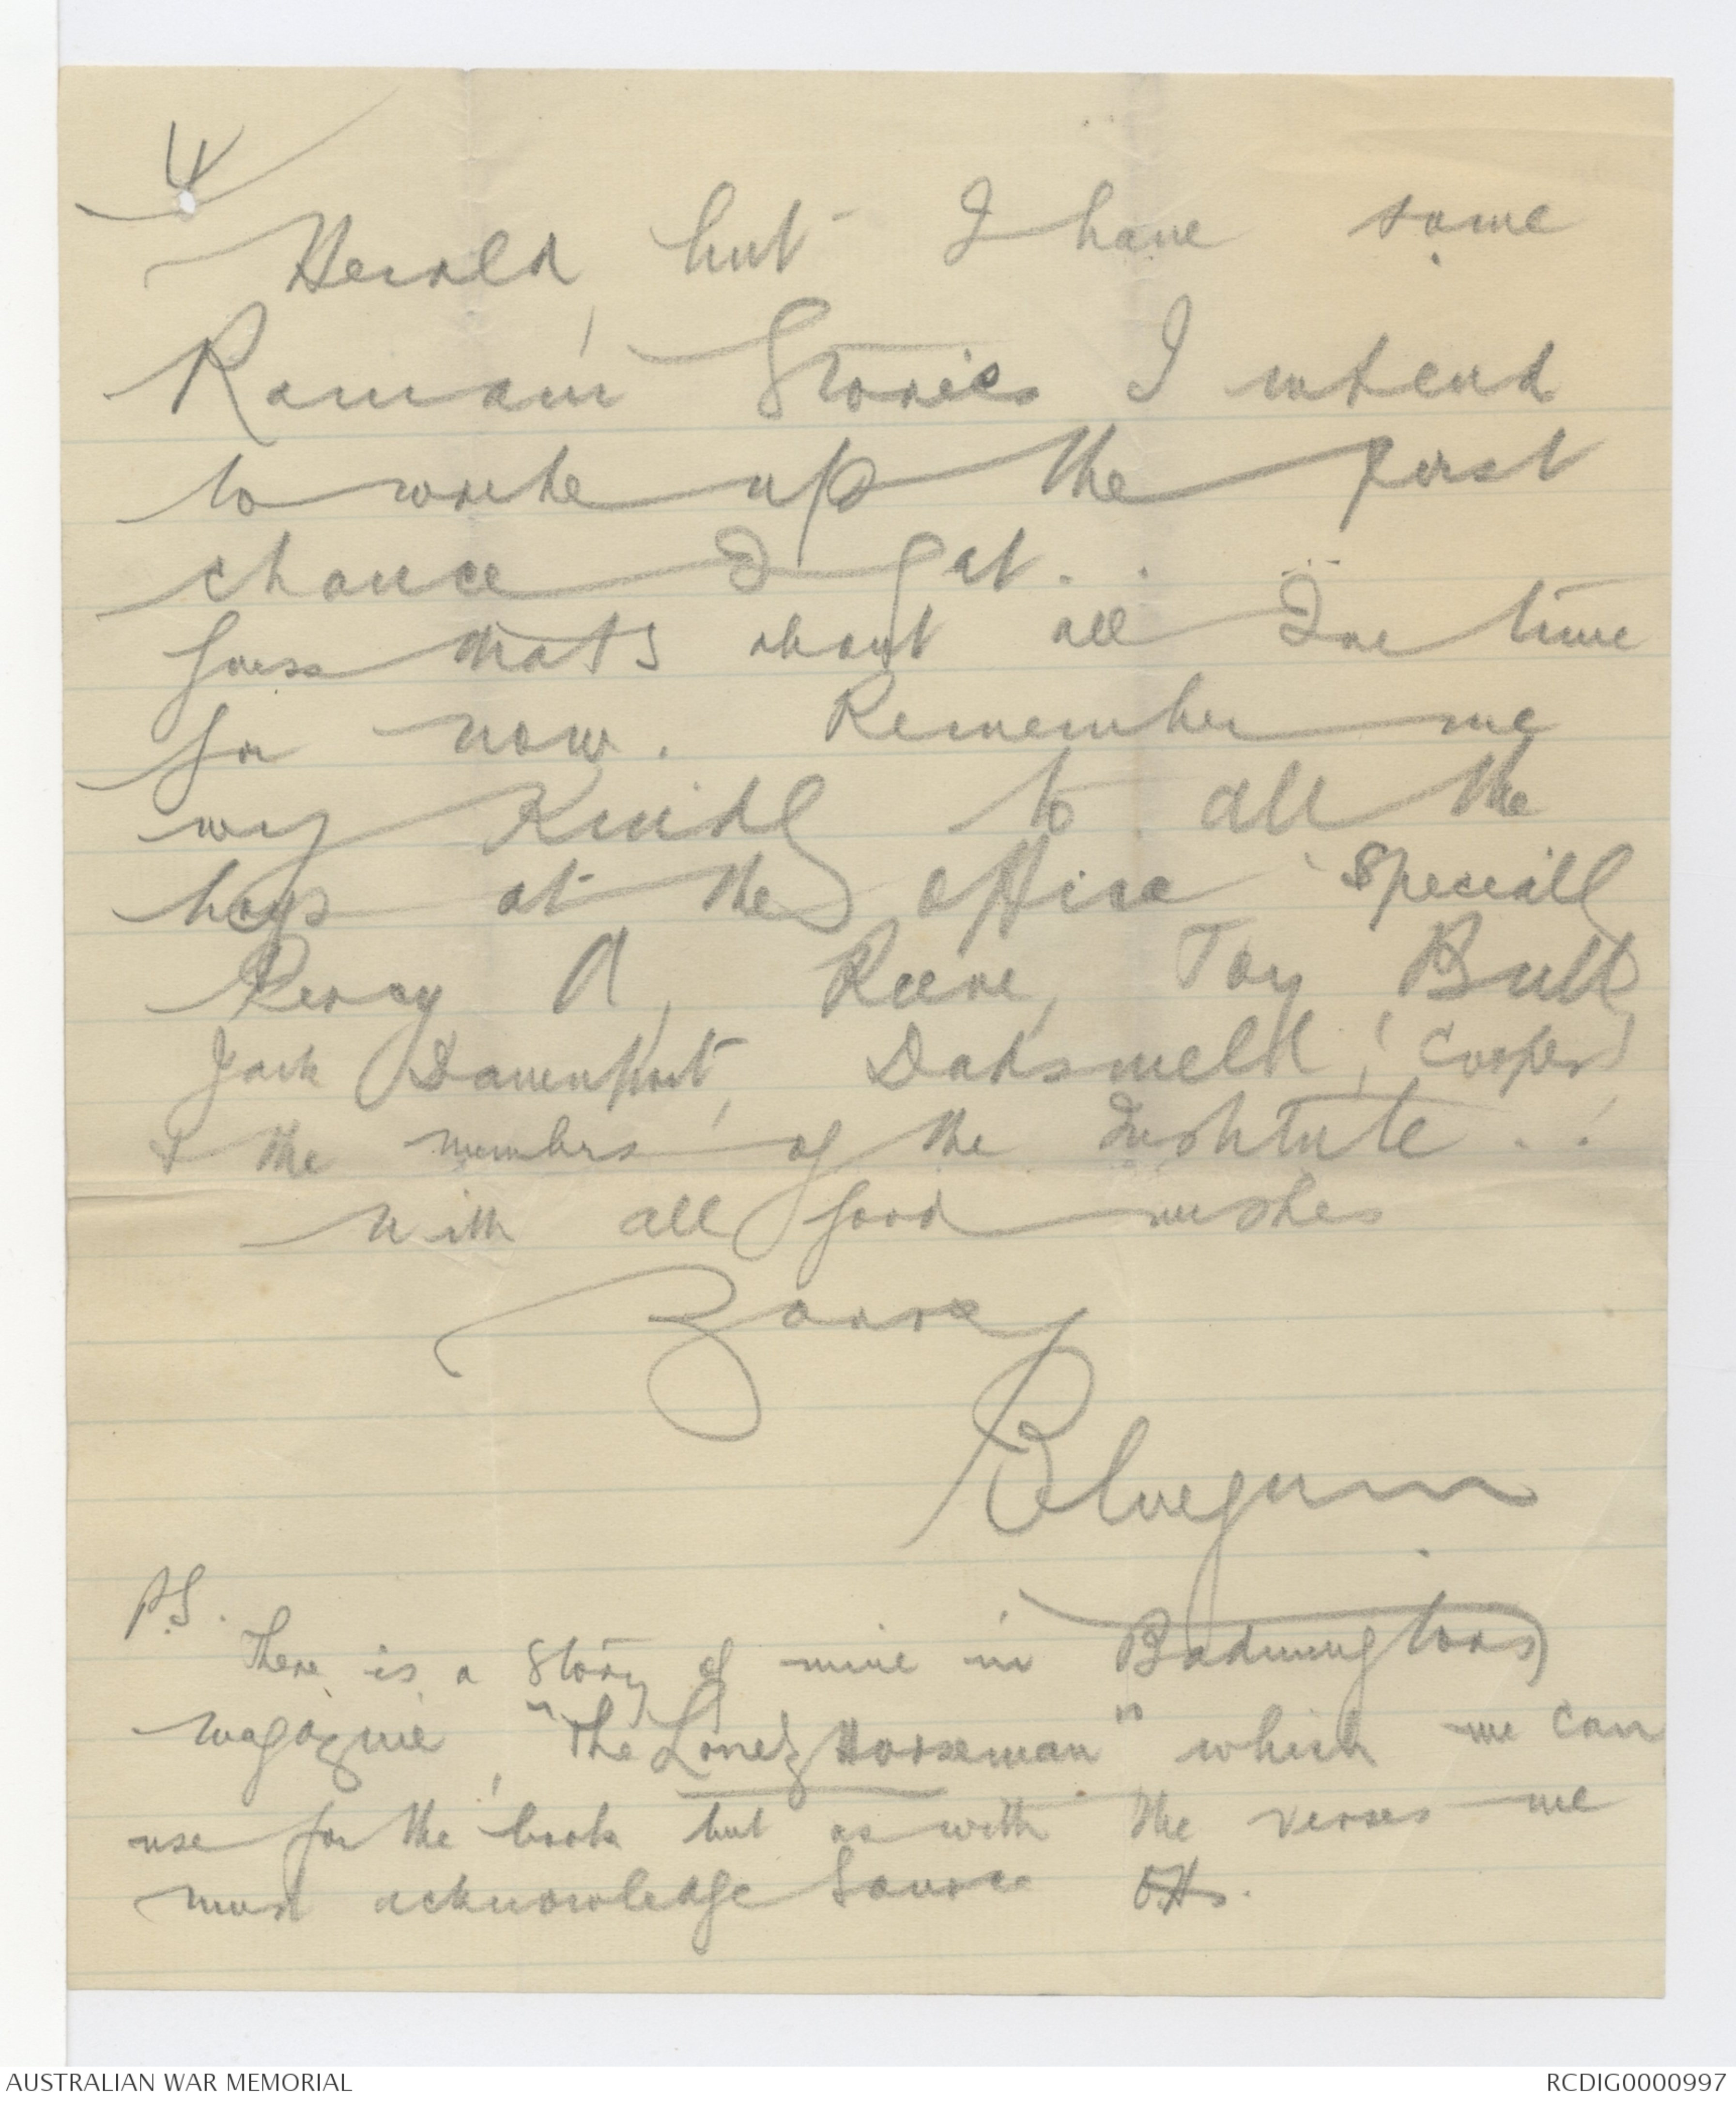 4
Herald, but I have some
Romani Stories I intend
to write up the first
chance I get. .
Guess thats about all I've time
for now. Remember me
very Kindly to all the
boys at the office specially
Percy A, Reeve, Toy, Bull,
Jack Davenport, Cooper
& the members of the Institute . .
With all good wishes
Yours
Bluegum
P.S.
There is a story of mine in Badmington's
magazine, "The Lonely Horseman" which we can
use for the book but as with the verses we
must acknowledge source OHs.
AUSTRALIAN WAR MEMORIAL
RCDIG0000997